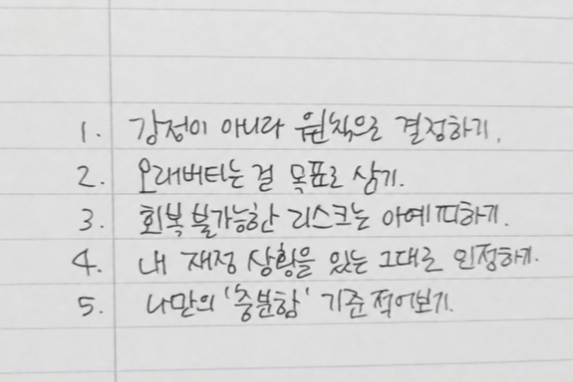 1. 감정이 아니라 원칙으로 결정하기.
2. 오래버티는 걸 목표로 삼기.
3. 회복 불가능한 리스크는 아예 피하기.
4. 내 재정 상황을 있는 그대로 인정하기.
5. 나만의 '충분함' 기준 적어보기.